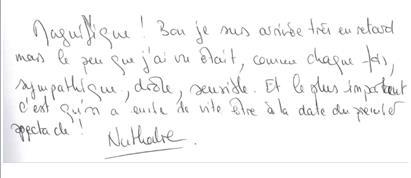 Magnifique ! Bon je suis arrivée très en retard
mais le peu que j'ai vu était, comme chaque fois,
sympathique, drôle, sensible. Et le plus important
c'est qu'on a envie de vite être à la date du premier
spectacle !
Nathalie.